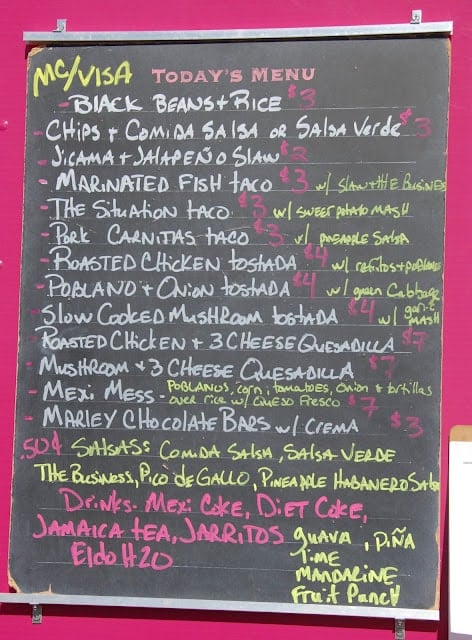 MC/VISA TODAY'S MENU
- BLACK BEANS + RICE $3
- CHIPS + COMIDA SALSA OR SALSA VERDE $3
- JICAMA + JALAPEÑO SLAW $2
- MARINATED FISH TACO $3 w/ SLAW + THE BUSINESS
- THE SITUATION TACO $3 w/ SWEET POTATO MASH
- PORK CARNITAS TACO $3 w/ PINEAPPLE SALSA
- ROASTED CHICKEN TOSTADA $4 w/ refritos + poblanos
- POBLANO + ONION TOSTADA $4 w/ green Cabbage
- SLOW COOKED MUSHROOM TOSTADA $4 w/ garlic MASH
- ROASTED CHICKEN + 3 CHEESE QUESADILLA $7
- MUSHROOM + 3 CHEESE QUESADILLA $7
- MEXI MESS - POBLANOS, corn, tomatoes, Onion + tortillas
over rice w/ QUESO FRESCO $7
- MARLEY CHOCOLATE BARS w/ CREMA $3
.50¢ SALSAS: COMIDA SALSA, SALSA VERDE
THE BUSINESS, PICO de GALLO, PINEAPPLE HABANERO SALSA
Drinks- MEXI COKE, DIET COKE,
JAMAICA TEA, JARRITOS guava, PIÑA
Lime
ELDO H2O MANDARINE
Fruit Punch